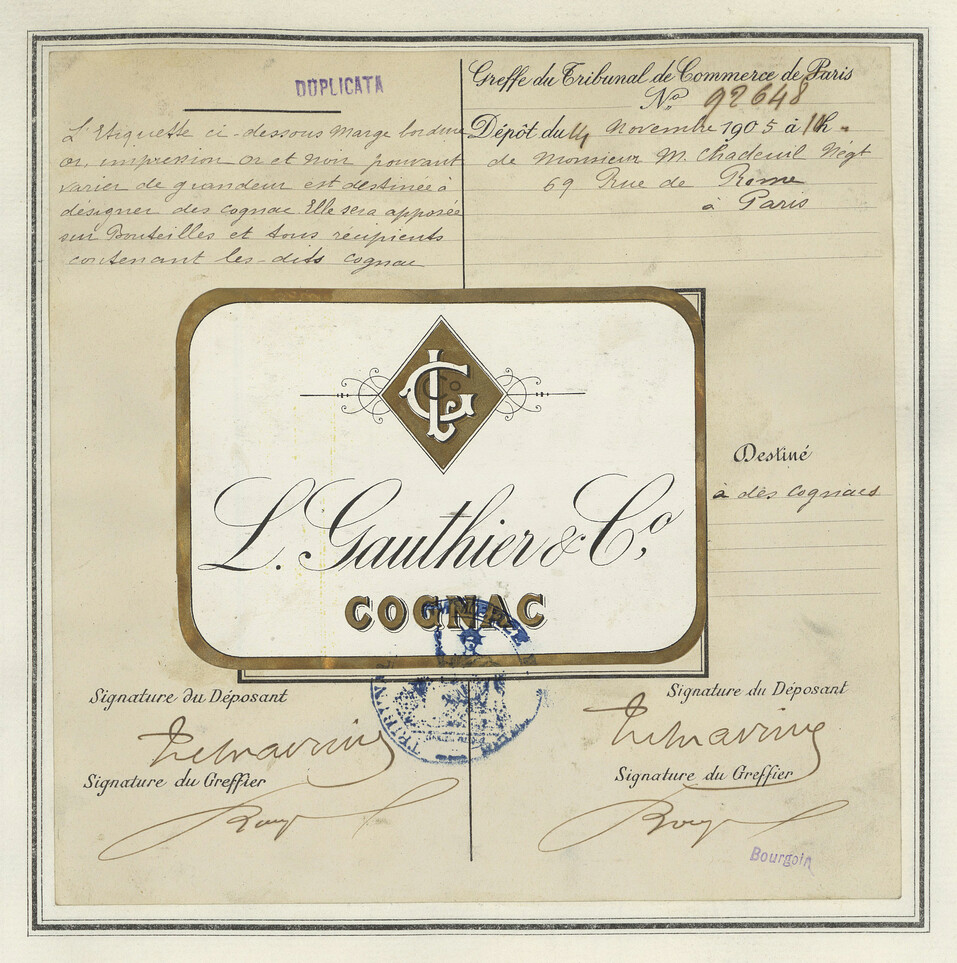 DUPLICATA
L'Etiquette ci-dessous marge bordure
or, impression or et noir pouvant
varier de grandeur est destinée à
désigner des cognac Elle sera apposée
sur Bouteilles et tous récipients
contenant les-dits cognac
Greffe du Tribunal de Commerce de Paris
No 92648
Dépôt du 14 Novembre 1905 à 10h
de Monsieur M. Chadeuil Négt
69 Rue de Rome
à Paris
LG Co
L. Gauthier & Co,
COGNAC
Destiné
à des cognacs
Signature du Déposant
Signature du Greffier
Signature du Déposant
Signature du Greffier
Bourgoin